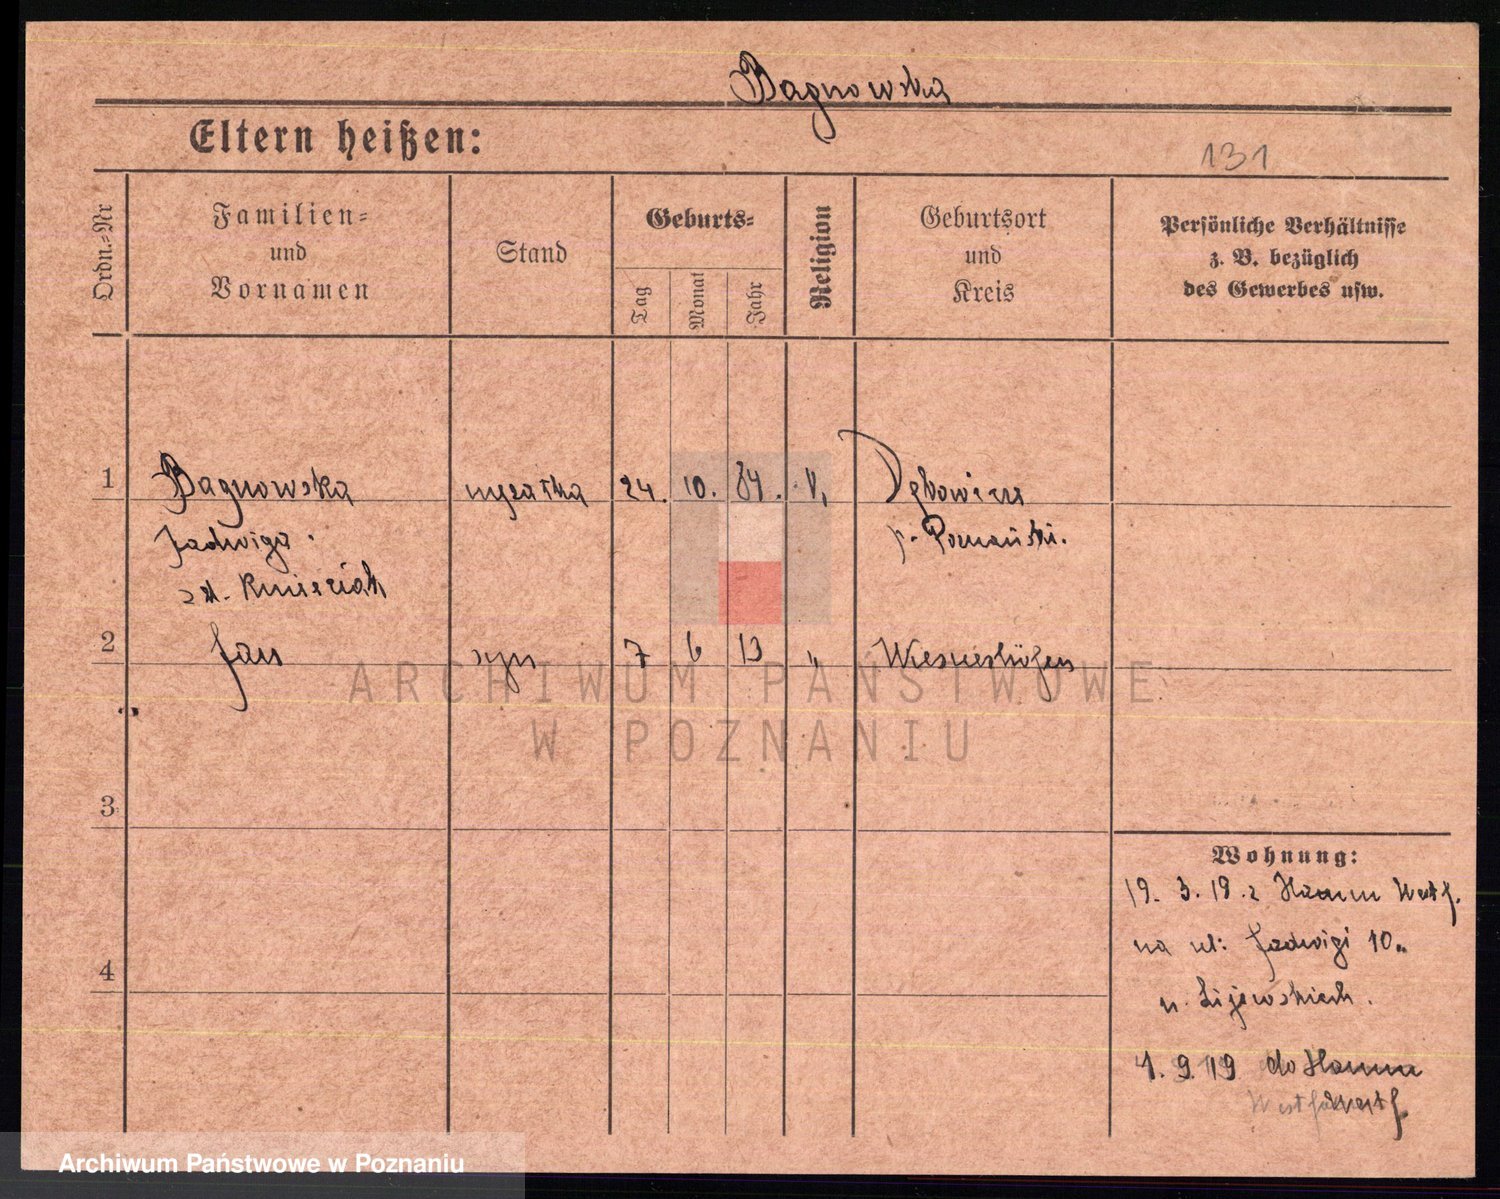 Bagnowska
Eltern heißen:
131
Ordn.-Nr
Familien-
und
Vornamen
Stand
Geburts-
Tag
Monat
Jahr
Religion
Geburtsort
und
Kreis
Persönliche Verhältnisse
z. B. bezüglich
des Gewerbes usw.
1 Bagnowska 24. 10. 84.
Jadwiga p. Poznański.
2 Jan syn 7 6 13 "
3
4
Wohnung:
19. 3. 19. z Hamm Westf.
na ul: Jadwigi 10.
u. Lijewskich.
4. 9. 19 do Hamm
Westf
ARCHIWUM PAŃSTWOWE
W POZNANIU
Archiwum Państwowe w Poznaniu